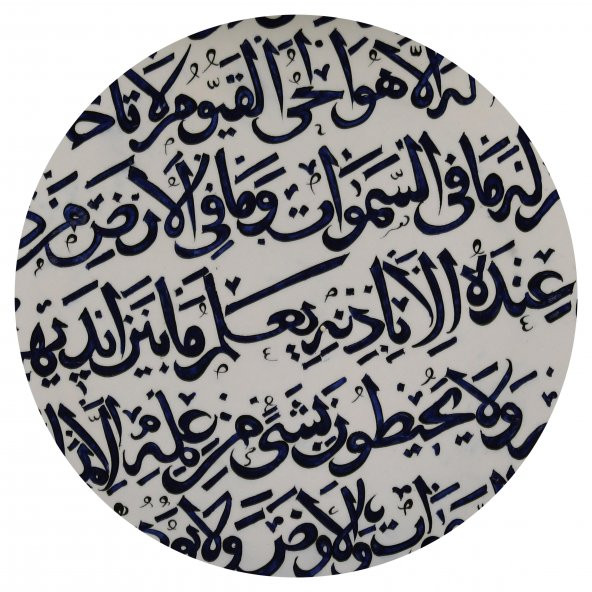 له الا هو الحي القيوم لا تاخ
له ما في السموات وما في الارض من
عنده الا باذنه يعلم ما بين ايديه
ولا يحيطون بشئ من علمه الا
وات والارض ولا يؤد